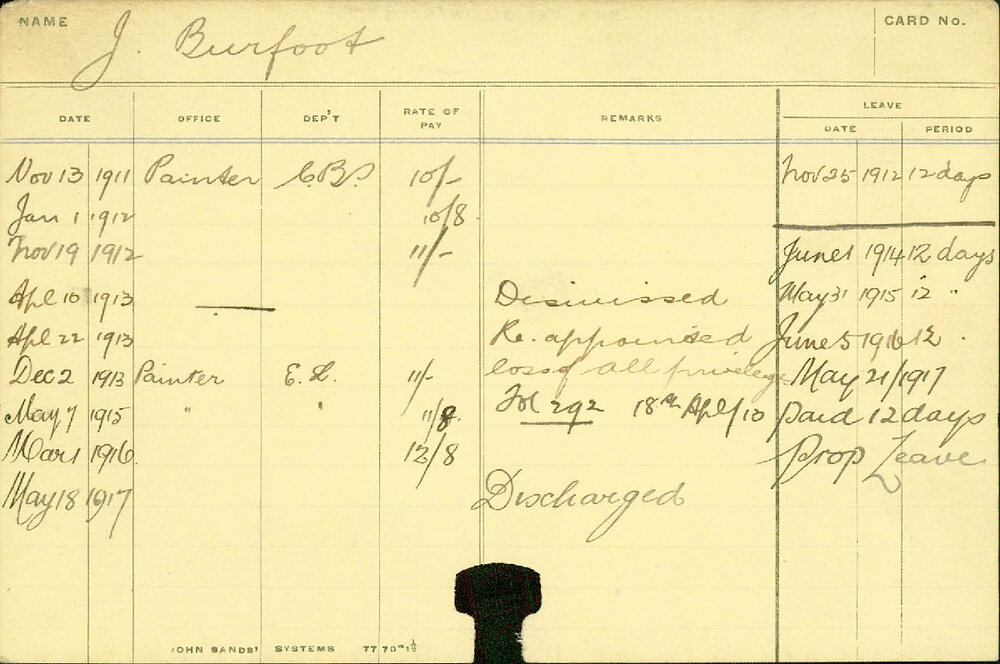 NAME J. Burfoot CARD No.
LEAVE
DATE OFFICE DEP'T RATE OF PAY REMARKS DATE PERIOD
Nov 13 1911 Painter C.B.S 10/- Nov 25 1912 12 days
Jan 1 1912 10/8
Nov 19 1912 11/- June 1 1914 12 days
Apl 10 1913 — Dismissed May 31 1915 12 "
Apl 22 1913 Re. appointed June 5 1916 12 "
Dec 2 1913 Painter E.L. 11/- loss of all privilege May 21/1917
May 7 1915 " " 11/8 Fol 292 18th Apl/13 paid 12 days
Mar 1 1916 12/8 Prop Leave
May 18 1917 Discharged
JOHN SANDS' SYSTEMS